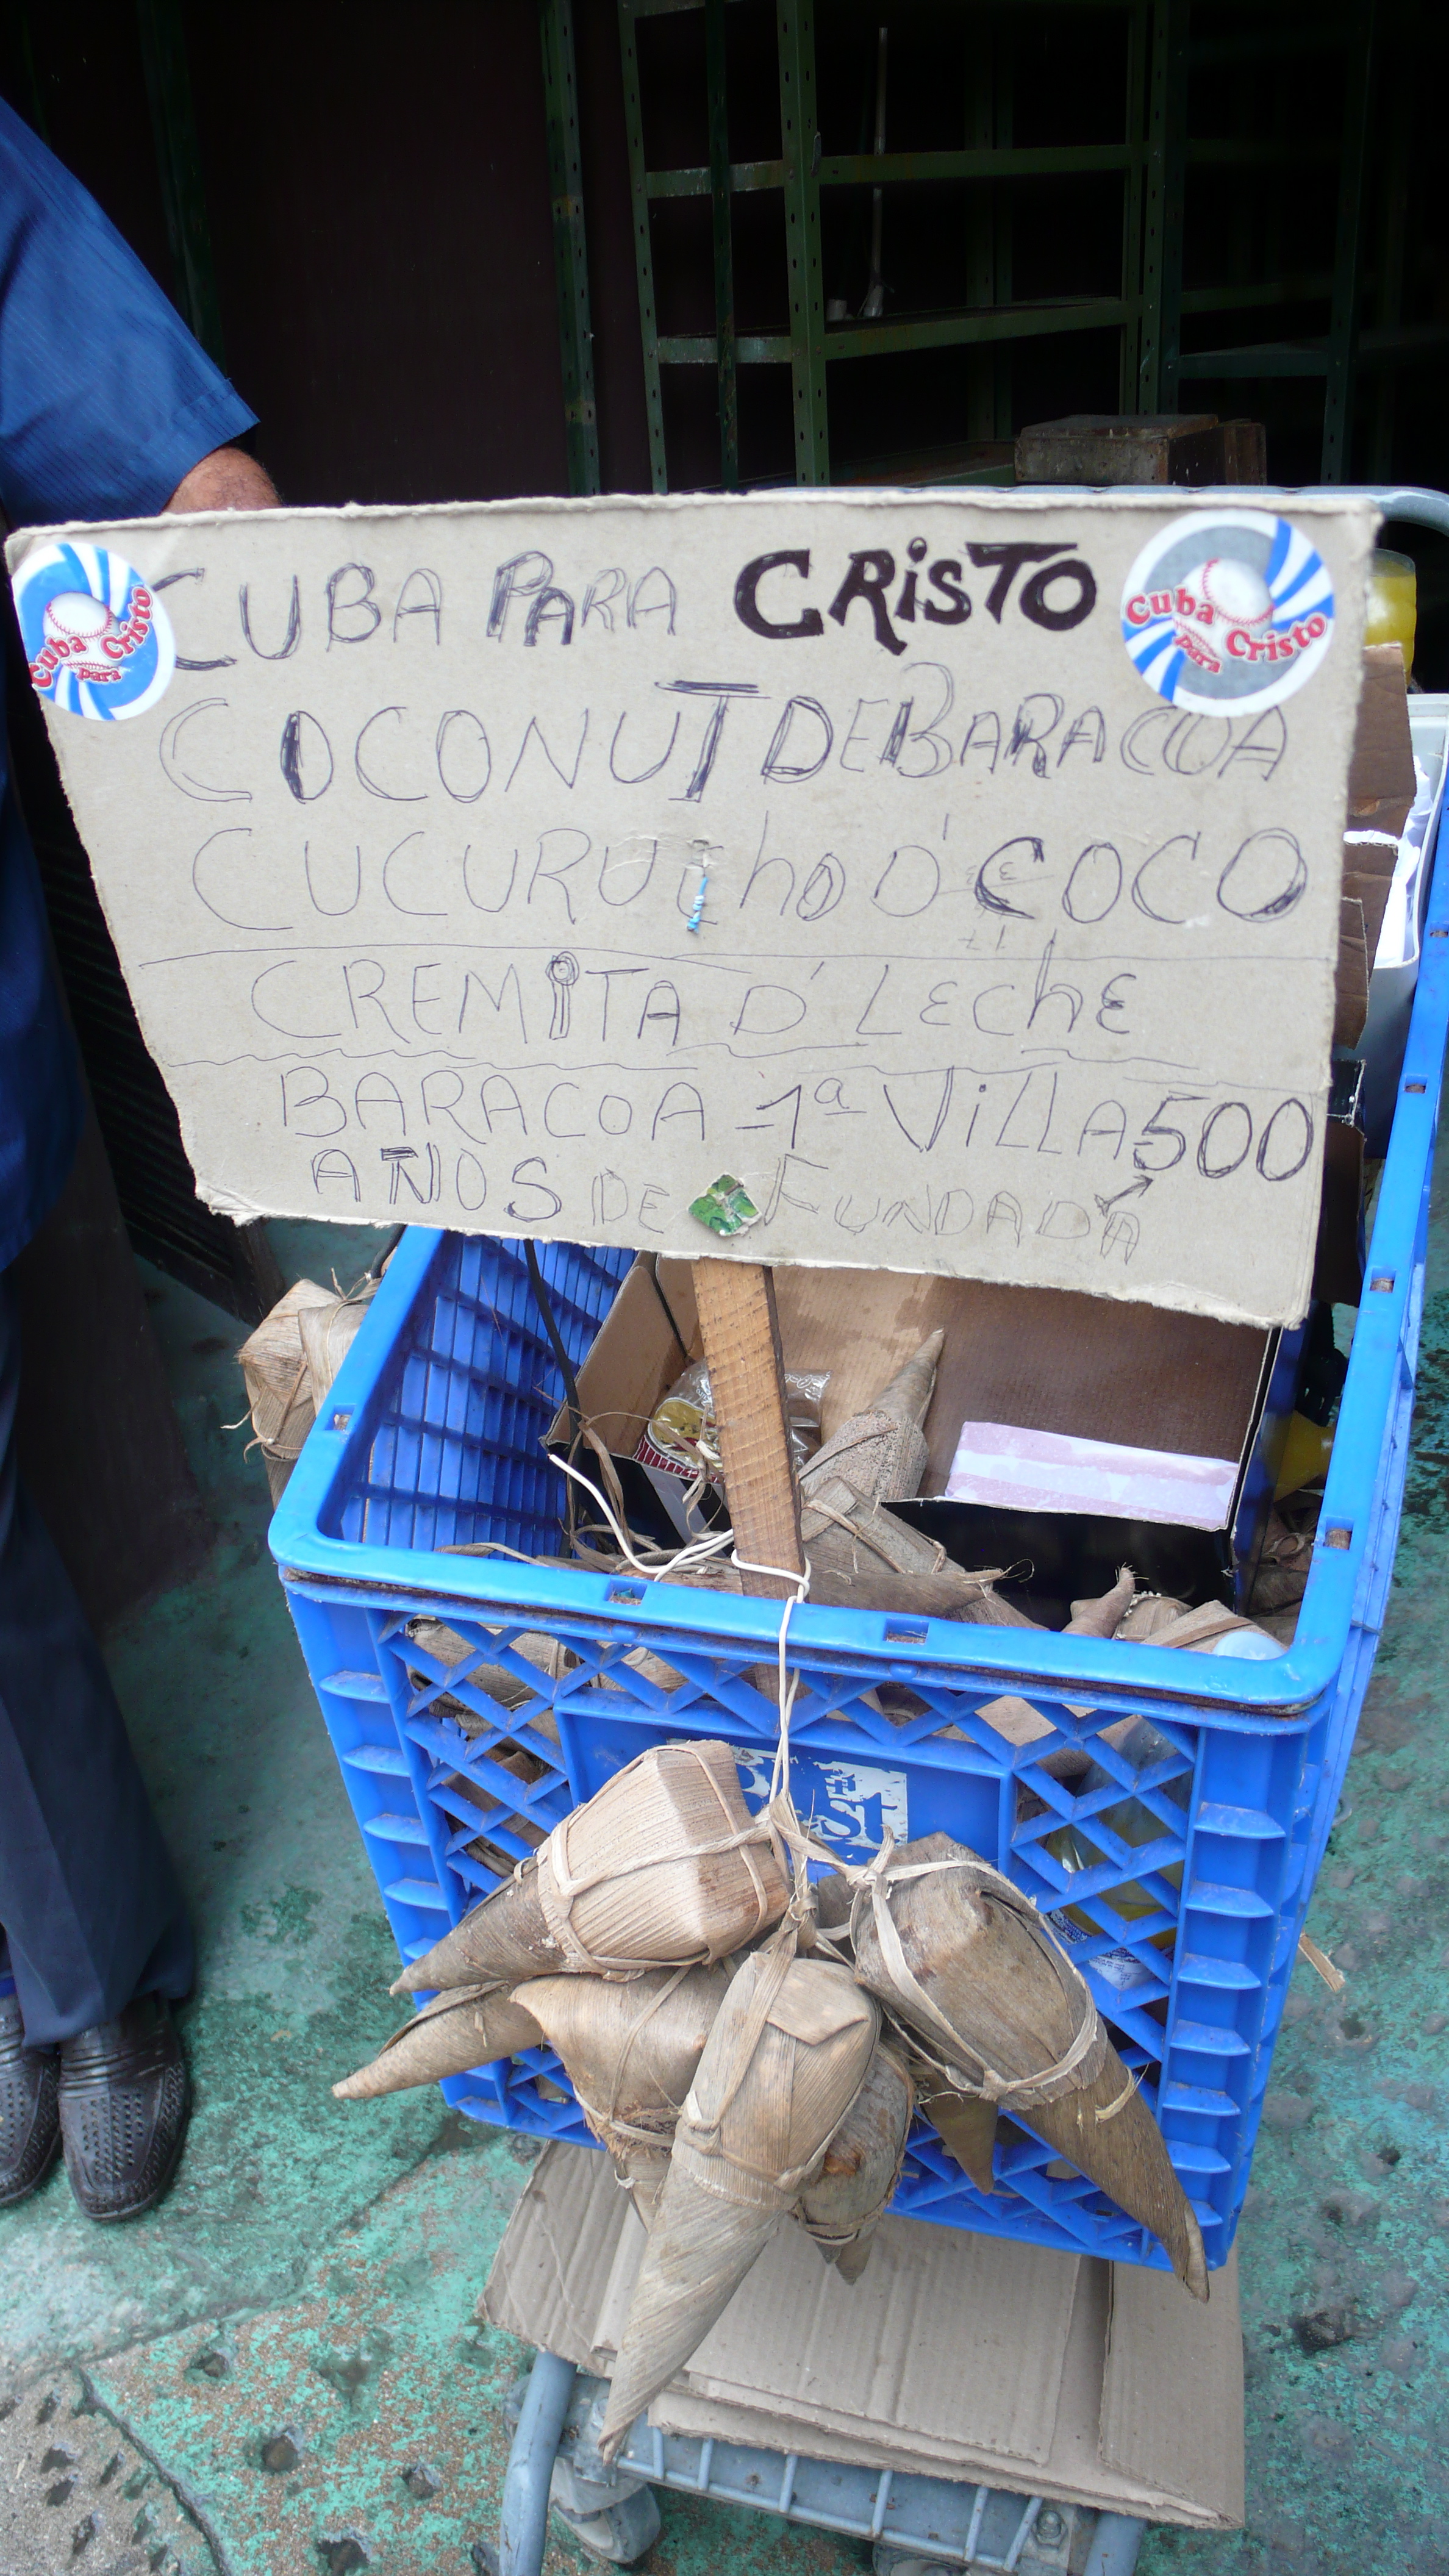 CUBA PARA CRiSTO
Cuba para Cristo
Cuba para Cristo
COCONUT DE BARACOA
CUCURUChO D' COCO
CREMiTA D' LEchE
BARACOA 1ª ViLLA 500
AÑOS DE FUNDADA